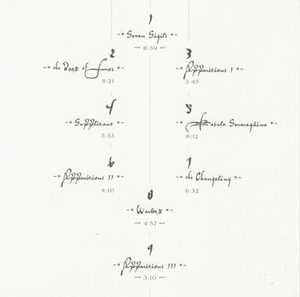 1
Seven Sigils
6:39
2
the Door of
8:21
3
Apparitions I
3:43
4
Supplicant
5:33
5
Fabula Smaragdina
6:12
6
Apparitions II
4:10
7
the Changeling
6:32
8
4:57
9
Apparitions III
3:10